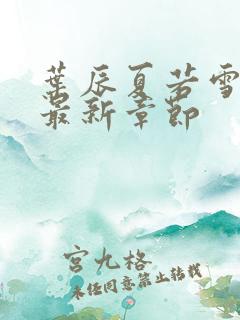 葉辰夏若雪
最新章節
宮九格
未任同意禁止转载